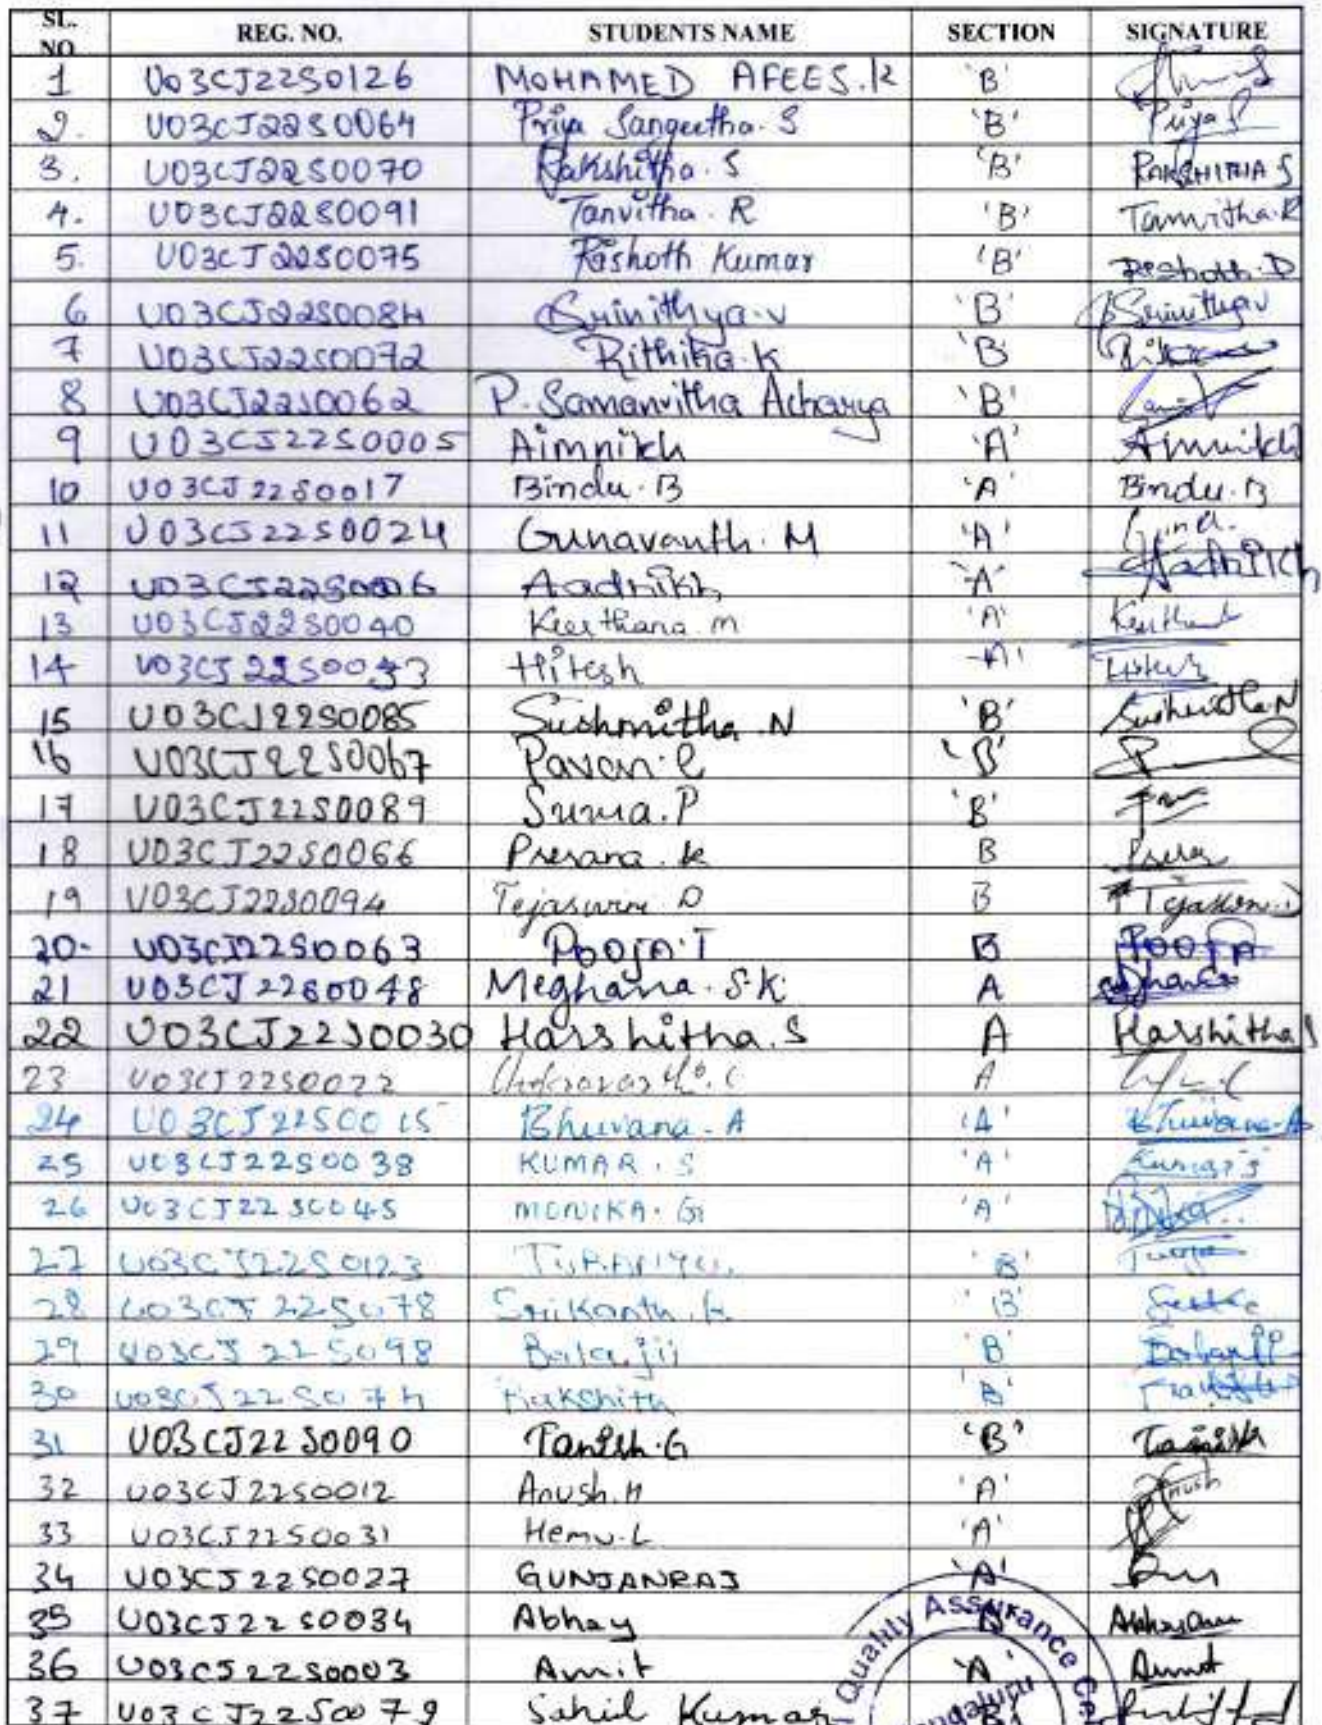 SL. NO REG. NO. STUDENTS NAME SECTION SIGNATURE
1 U03CJ22S0126 MOHAMED AFEES.R 'B'
2. U03CJ22S0064 Priya Sangeetha. S 'B' Priya S
3. U03CJ22S0070 Rakshitha. S 'B' RAKSHITHA S
4. U03CJ22S0091 Tanvitha. R 'B' Tanvitha.R
5. U03CJ22S0075 Rishoth Kumar 'B' Rishoth.D
6 U03CJ22S0084 Srinithya.v 'B' Srinithya v
7 U03CJ22S0072 Rithika.K 'B'
8 U03CJ22S0062 P. Samanvitha Acharya 'B'
9 U03CJ22S0005 Aimnikh 'A' Aimnikh
10 U03CJ22S0017 Bindu. B 'A' Bindu. B
11 U03CJ22S0024 Gunavanth. M 'A'
12 U03CJ22S0006 Aadhikh 'A'
13 U03CJ22S0040 Keerthana. m 'A'
14 U03CJ22S0033 Hitesh 'A'
15 U03CJ22S0085 Sushmitha. N 'B' Sushmitha N
16 U03CJ22S0067 Pavan. 'B'
17 U03CJ22S0089 Suma. P 'B'
18 U03CJ22S0066 Prerana. k B
19 U03CJ22S0094 Tejaswini D B Tejaswini D
20. U03CJ22S0063 Pooja.T B POOJA
21 U03CJ22S0048 Meghana. S.K A
22 U03CJ22S0030 Harshitha. S A Harshitha S
23 U03CJ22S0022 A
24 U03CJ22S0015 Bhuvana. A 'A' Bhuvana. A
25 U03CJ22S0038 KUMAR. S 'A' Kumar. S
26 U03CJ22S0045 MONIKA. G 'A'
27 U03CJ22S0123 'B'
28 U03CJ22S078 Srikanth. k 'B'
29 U03CJ22S098 Balajii 'B' Balajii
30 U03CJ22S074 Rakshith 'B'
31 U03CJ22S0090 Tanish. G 'B' Tanish
32 U03CJ22S0012 Anush. H 'A' Anush
33 U03CJ22S0031 Hemu. L 'A'
34 U03CJ22S0027 GUNJANRAJ 'A'
35 U03CJ22S0034 Abhay
36 U03CJ22S0003 Amit 'A' Amit
37 U03CJ22S0079 Sahil Kumar 'B'
Quality Assurance